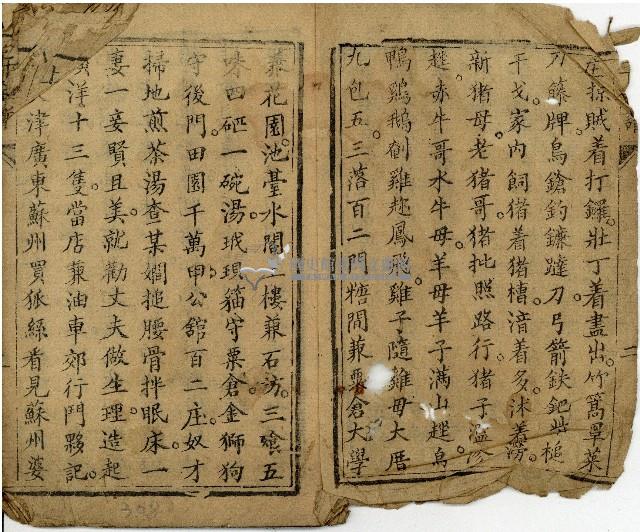 賊着打鑼。壯丁着盡出。竹篙罩菜
刀籐牌鳥鎗釣鐮躂刀弓箭鈇鈀槌
干戈。家內飼猪着猪槽。湆着多沫
新猪母。老猪哥。猪批照路行。猪子溢
趖。赤牛哥水牛母羊母羊子滿山趖。鳥
鴨鷄鵝劊雞趖鳳雞雞子隨雞母大厝
九包五三落百二門糖間兼粟倉大學
兼花園。池臺水閣樓兼石訪。三飡五
味四一碗湯玳瑁猫守粟倉。金獅狗
守後門。田園千萬甲。公舘百二庄。奴才
掃地煎茶湯。查某嫺搥腰骨拌眠床。一
妻一妾賢且美。就勸丈夫做生理。造起
洋十三隻。當店兼油車。郊行鬥夥記。
津廣東蘇州買狐絲看見蘇州婆